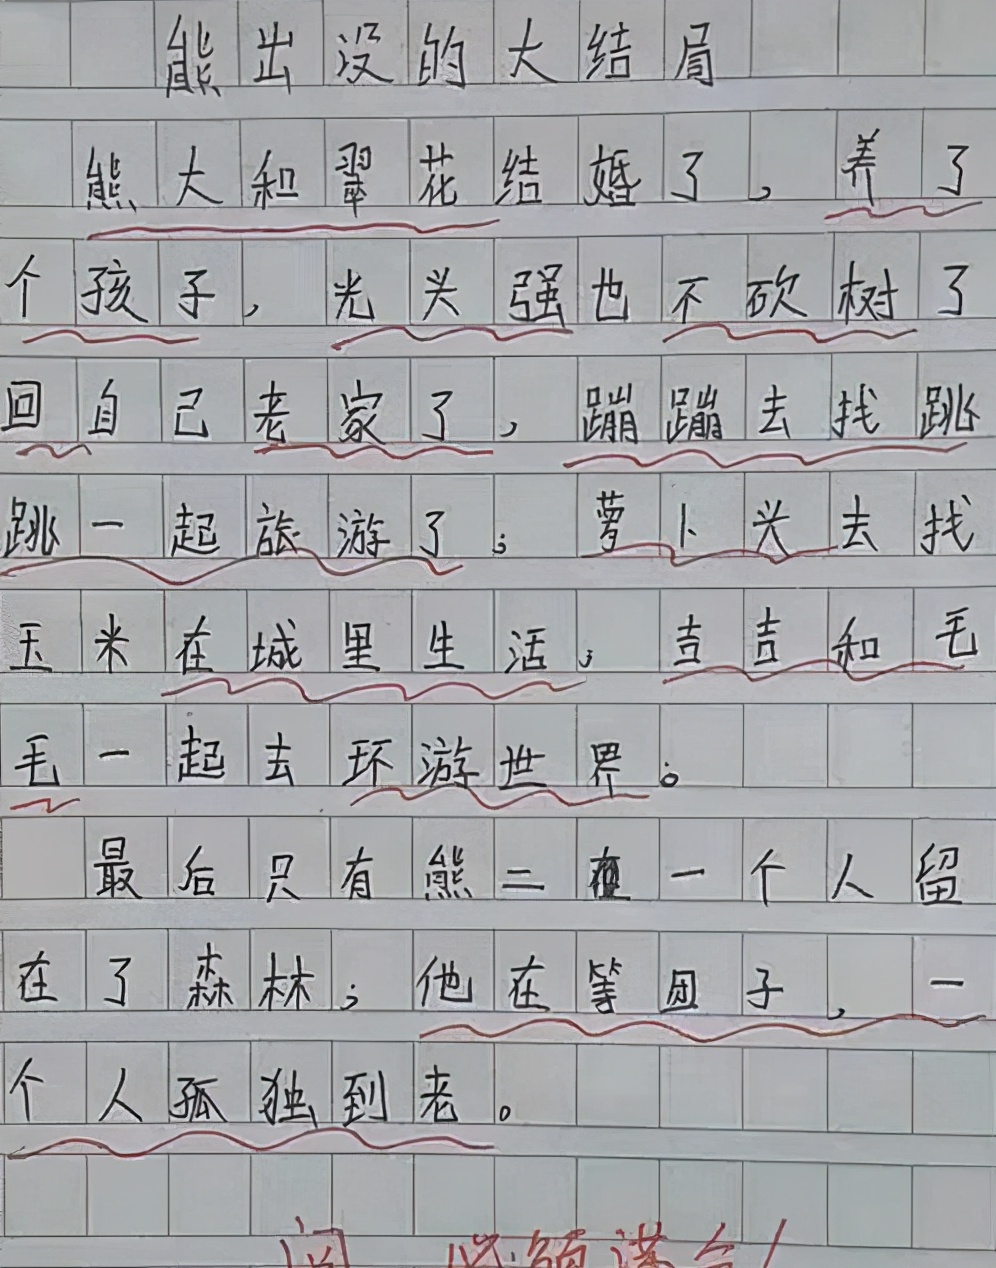 熊出没的大结局
熊大和翠花结婚了,养了
个孩子,光头强也不砍树了
回自己老家了,蹦蹦去找跳
跳一起旅游了;萝卜头去找
玉米在城里生活;吉吉和毛
毛一起去环游世界。
最后只有熊二在一个人留
在了森林;他在等团子,一
个人孤独到老。
阅